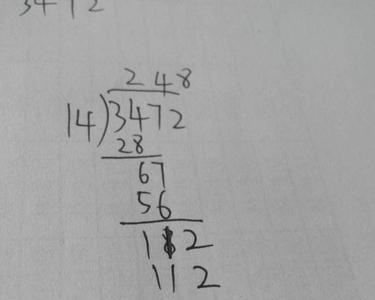 3472
248
14)3472
28
67
56
112
112